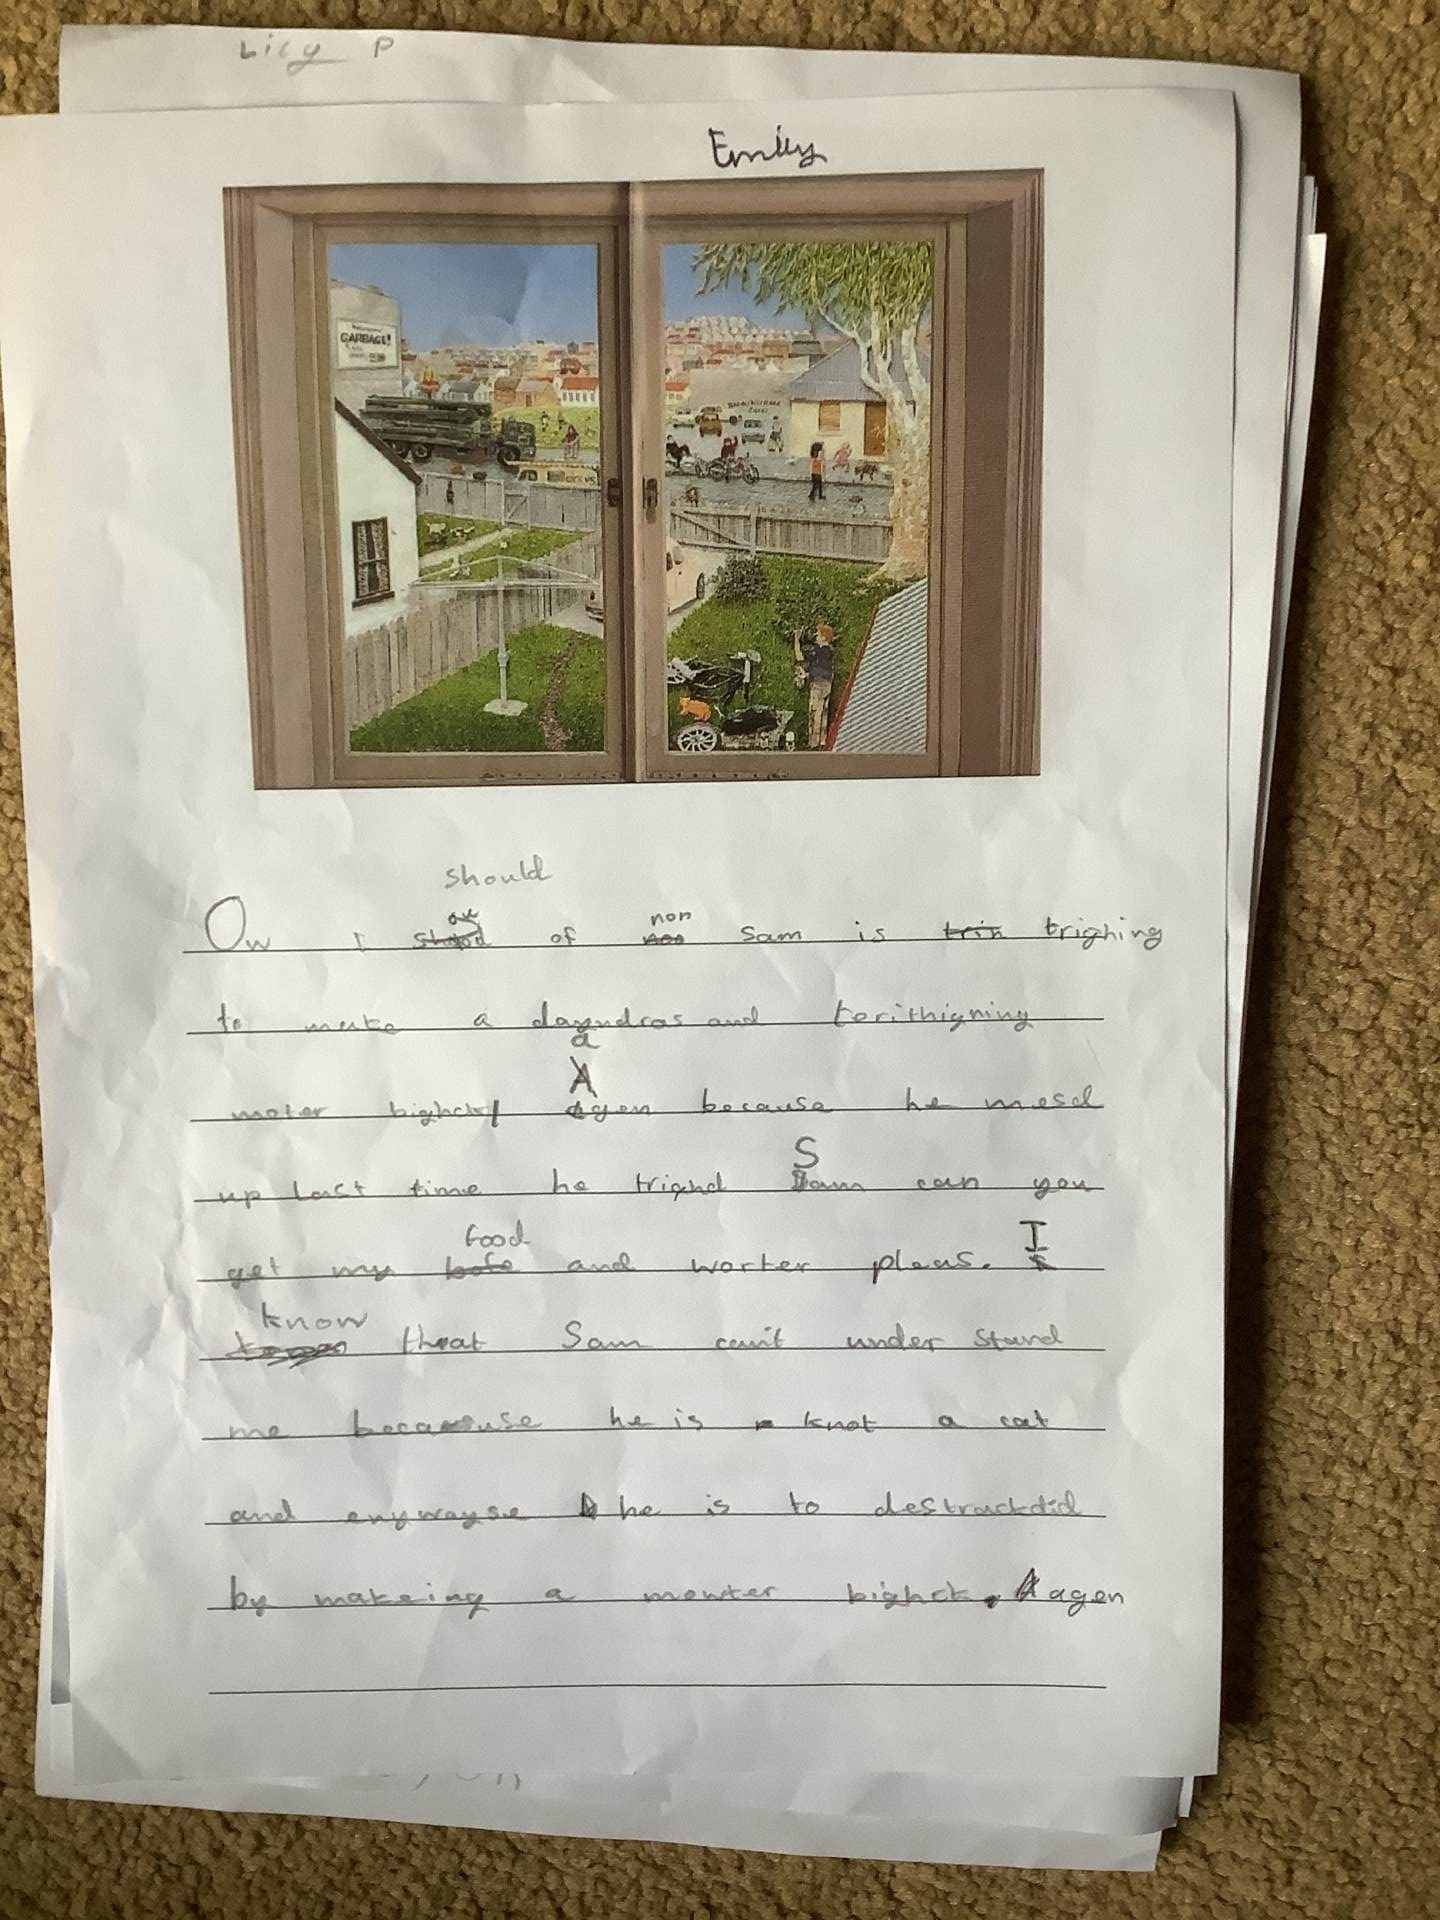 Lily P
Emily
GARBAGE!
should
Ow I of non Sam is trighing
to make a dayndras and torithigning
moter bighck agen because he mesd
up last time he trighd Sam can you
get my food and worter pleas. I
know that Sam can't under stand
me because he is knot a cat
and enywayse he is to destrackdid
by makeing a mowter bighck. agen